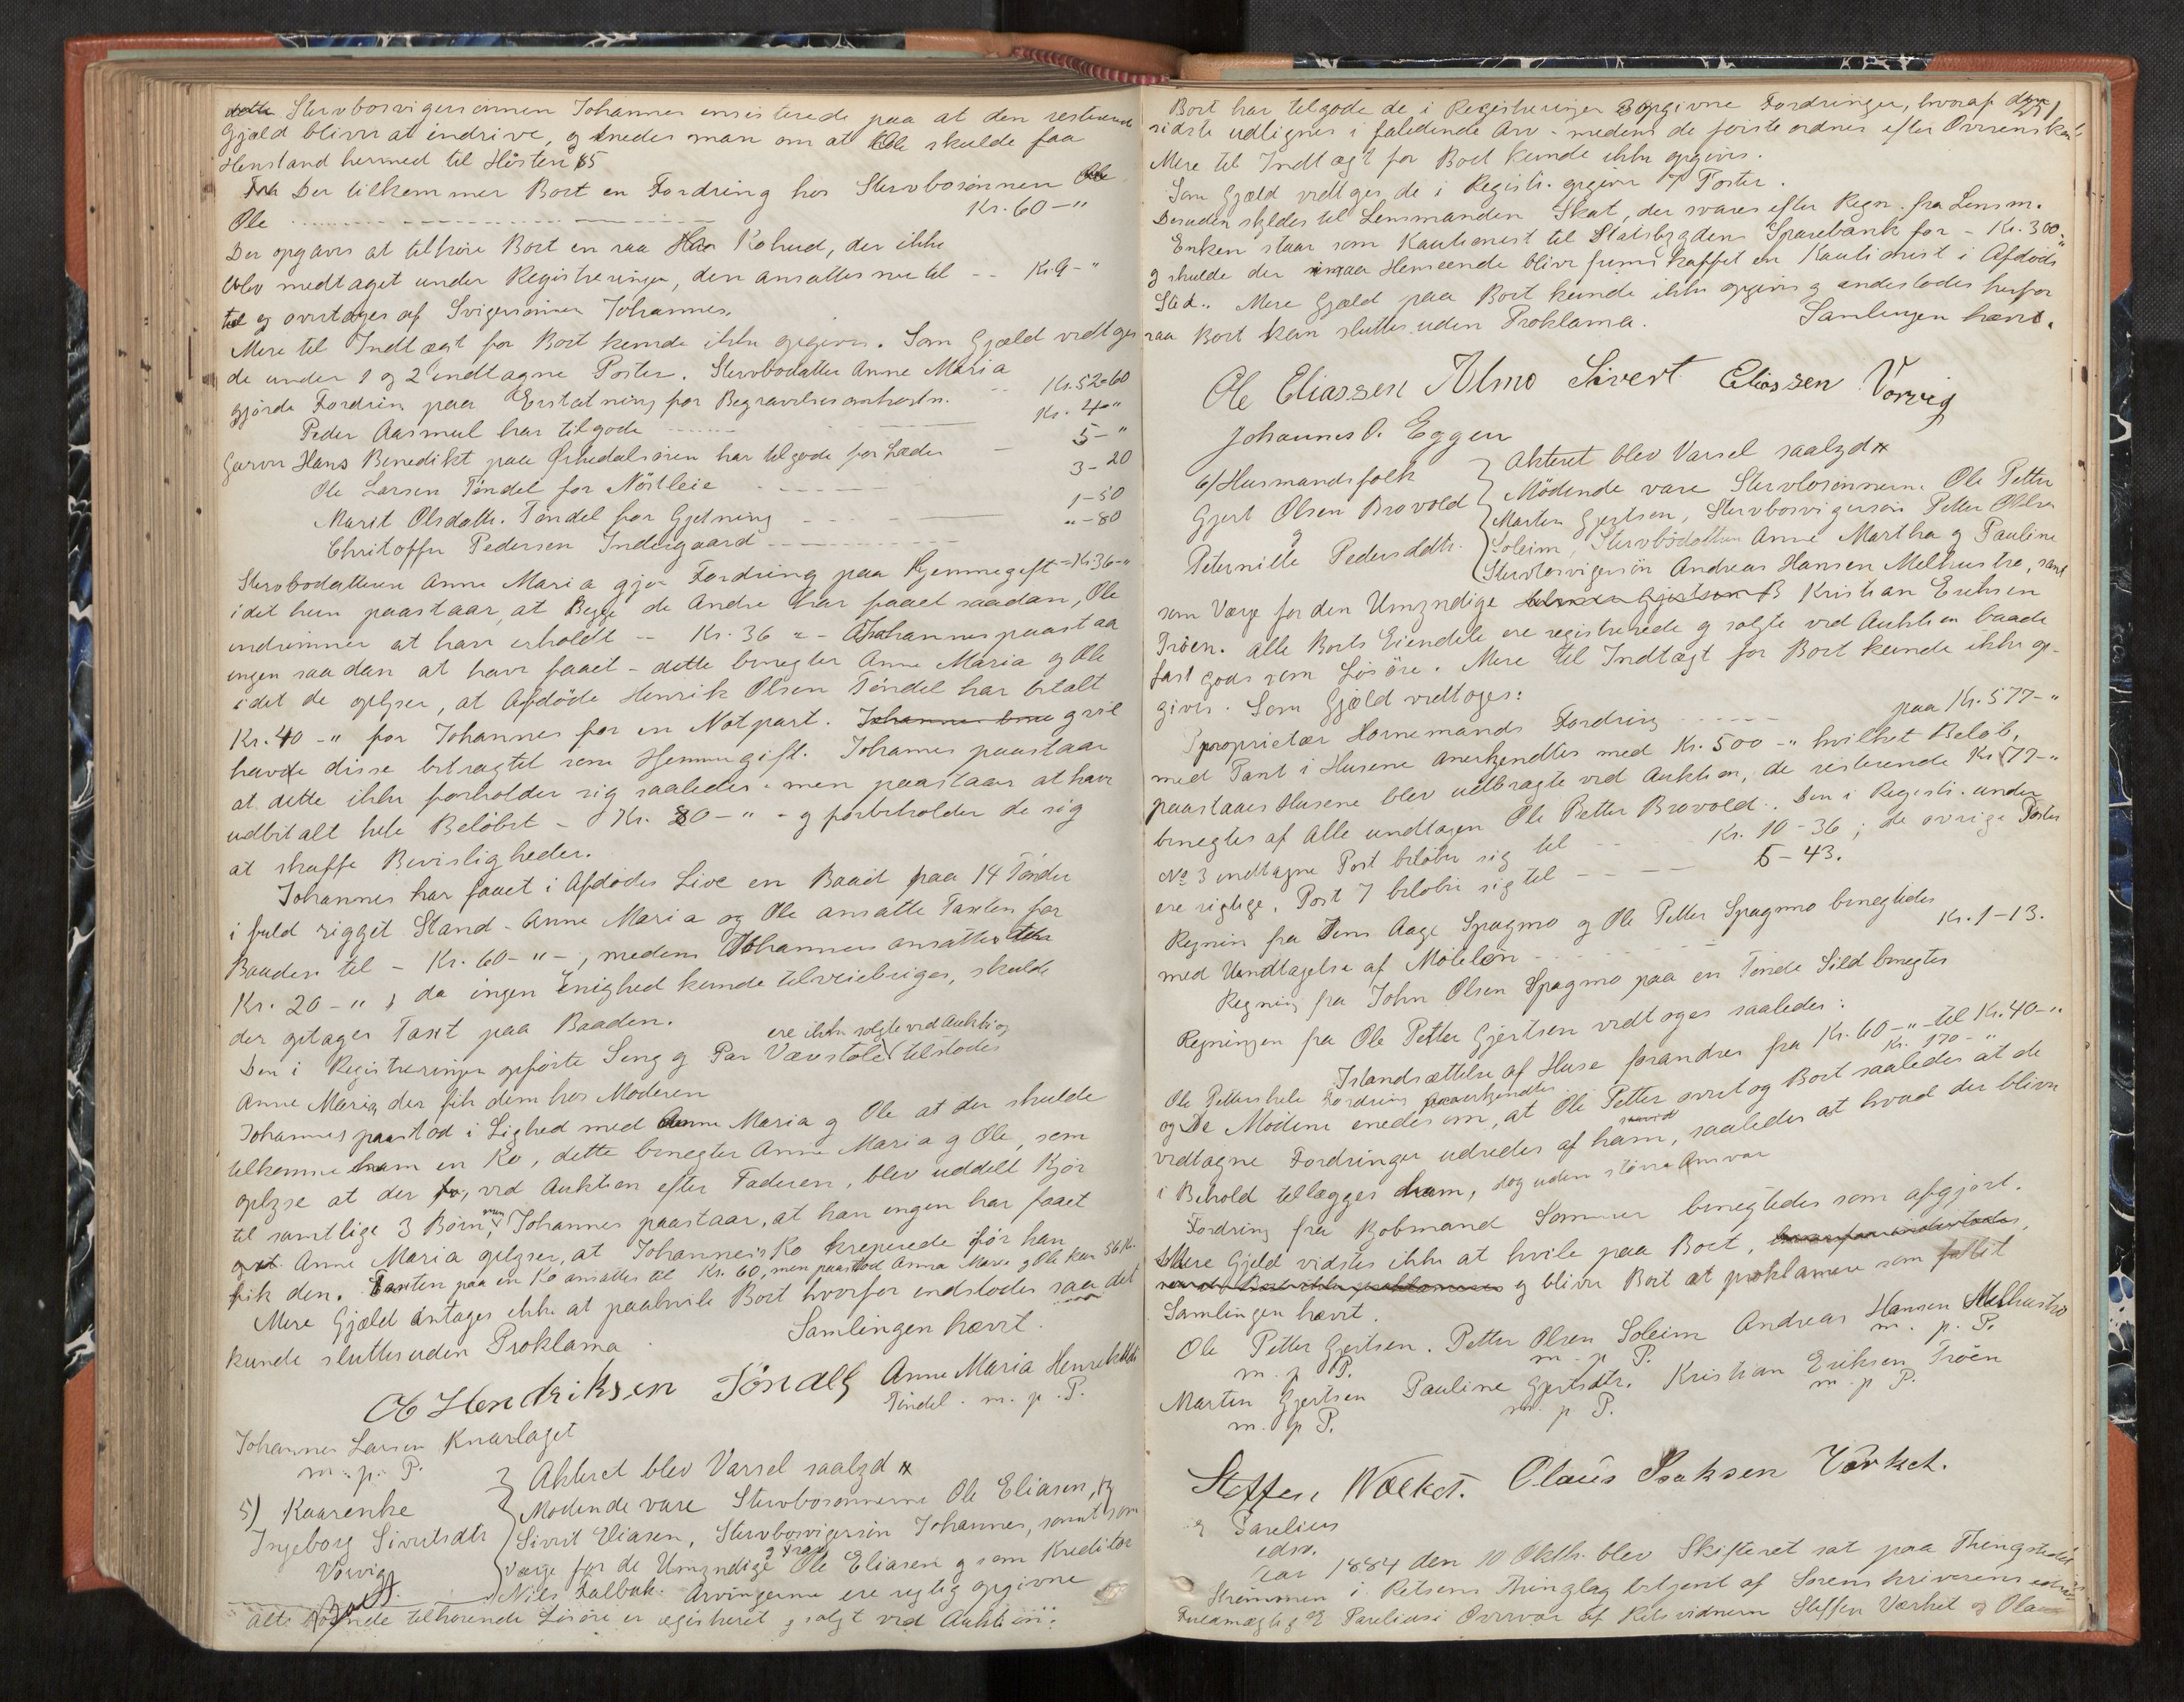 Stervbosvigersønnen Johannes insisterede paa at den resterende
Gjæld bliver at inddrive, og enedes man om at Ole skulde faa
Henstand hermed til Høsten 85
Der tilkommer Boet en Fordring hos Stervbosønnen
Ole Kr. 60-"
Der opgaves at tilhøre Boet en raa Kohud, der ikke
blev medtaget under Registreringen, den ansattes nu til -- Kr. 9-"
og overtages af Svigersønnen Johannes.
Mere til Indtægt for Boet kunde ikke opgives. Som Gjæld vedtoges
de under 1 og 2 indtagne Poster. Stervbodatter Anne Maria
gjorde Fordring paa Erstatning for Begravelsesomkostn. Kr. 52-60
Peder Aasmul har tilgode Kr. 4-"
Garver Hans Benedikt paa Ørkedalsøren har tilgode for Læder 5-"
Ole Larsen Tøndel for Nøstleie 3-20
Marit Olsdatt. Tøndel for Gjetning 1-50
Christoffer Pedersen Indergaard "-80
Stervbodatteren Anne Maria gjør Fordring paa Hjemmegift - Kr. 36-"
idet hun paastaar, at Begge de Andre har faaet saadan, Ole
indrømmer at have erholdt -- Kr. 36 " - Johannes paastaar
ingen saadan at have faaet - dette benegter Anne Maria og Ole
idet de oplyser, at Afdøde Henrik Olsen Tøndel har betalt
Kr. 40-" for Johannes for en Notpart. og vil
have disse betragtet som Hjemmegift. Johannes paastaar
at dette ikke forholder sig saaledes - men paastaar at have
udbetalt hele Beløbet - Kr. 80-" - og forbeholder de sig
at skaffe Bevisligheder.
Johannes har faaet i Afdødes Live en Baad paa 14 Tønder
i fuld rigget Stand - Anne Maria og Ole ansatte Taxten for
Baaden til - Kr. 60-"-, medens Johannes ansatte den
Kr. 20-", da ingen Enighed kunde tilveiebringes, skulde
der optages Taxt paa Baaden.
ere ikke solgte ved Auktion og
Den i Registreringen opførte Seng og Par Vævstole tilstodes
Anne Maria, der fik dem hos Moderen
Johannes paastod i Lighed med Anne Maria og Ole at der skulde
tilkomme ham en Ko, dette benegter Anne Maria og Ole, som
oplyse at der ved Auktion efter Faderen, blev uddelt Kjør
til samtlige 3 Børn, men Johannes paastaar, at han ingen har faaet
Anne Maria oplyser, at Johannes's Ko kreperede før han
fik den. Taxten paa en Ko ansattes til Kr. 60, men paastod Anna Maria og Ole kun 56 Kr.
Mere Gjæld antages ikke at paahvile Boet hvorfor indstodes saa det
kunde sluttes uden Proklama Samlingen hævet.
Ole Hendriksen Töndel Anne Maria Henriksdtr
Tøndel. m. p. P.
Johannes Larsen Knarlaget
m. p. P.
5) Kaarenke
Ingeborg Sivertsdtr
Vorvig
Akteret blev Varsel saalyd
Mødende vare Stervbosønnerne Ole Eliasen,
Sivert Eliasen, Stervbosvigersøn Johannes, samt som
Værge for de Umyndige Ole Eliasen og som Kreditor
Niels Falbak. Arvingerne ere rigtig opgivne
alt Boende tilhørende Løsøre er registreret og solgt ved Auktion.
251
Boet har tilgode de i Registreringen opgivne Fordringer, hvoraf den
sidste udlignes i faldende Arv - medens de første ordnes efter Overenskomst
Mere til Indtægt for Boet kunde ikke opgives.
Som Gjæld vedtoges de i Registr. opgivne 7 Poster.
Desuden skyldes til Lensmanden Skat, der svares efter Regn. fra Lensm.
Enken staar som Kautionist til Statsbygdens Sparebank for - Kr. 300-"
og skulde der i saa Henseende blive fremskaffet en Kautionist i Afdødes
Sted. Mere Gjæld paa Boet kunde ikke opgives og indestodes herfor
saa Boet kan sluttes uden Proklama. Samlingen hævet.
Ole Eliassen Almo Sivert Eliassen Vorvig
Johannes O. Eggen
6) Husmandsfolk
Gjert Olsen Brovold
og
Peternille Pedersdtr.
Akteret blev Varsel saalyd
Mødende vare Stervbosønnerne Ole Petter
Morten Gjertsen, Stervbosvigersøn Petter Olsen
Soleim, Stervbodøttrene Anne Martha og Pauline
Stervbosvigersøn Andreas Hansen Melhustrø, samt
som Værge for den Umyndige Kristian Eriksen
Trøen. Alle Boets Eiendele ere registrerede og solgte ved Auktion baade
fast Gods som Løsøre. Mere til Indtægt for Boet kunde ikke op-
gives. Som Gjæld vedtoges:
Proprietær Hornemands Fordring paa Kr. 577-"
med Pant i Husene anerkjendtes med Kr. 500-" hvilket Beløb,
paastaaes Husene blev udbragte ved Auktion, de resterende Kr. 77-"
benegtes af Alle undtagen Ole Petter Brovold. Den i Registr. under
No 3 indtagne Post beløber sig til Kr. 10-36; de øvrige Poster
ere rigtige, Post 7 beløber sig til 5-43.
Regning fra Jens Aage Spagmo og Ole Petter Spagmo benegtedes
med Undtagelse af Møleløn Kr. 1-13.
Regning fra John Olsen Spagmo paa en Tønde Sild benegtes
Regningen fra Ole Petter Gjertsen vedtoges saaledes:
Istandsættelse af Huse forandres fra Kr. 60-" til Kr. 40-"
Ole Petters hele Fordring anerkjendtes Kr. 170-"
og De Mødende enedes om, at Ole Petter overtog Boet saaledes at de
vedtagne Fordringer udredes af ham, saaledes at hvad der bliver
i Behold tillægges ham, dog uden større Ansvar
Fordring fra Kjøbmand Sommer benegtedes som afgjort.
Mere Gjæld vidstes ikke at hvile paa Boet,
og bliver Boet at proklamere som fallit
Samlingen hævet.
Ole Petter Gjertsen. Petter Olsen Soleim Andreas Hansen Melhustrø
m. p P. m. p P. m. p. P.
Martin Gjertsen Pauline Gjertsdtr. Kristian Eriksen Trøen
m. p P. m. p P. m. p P.
Steffen Wærket. Olaus Isaksen Værket.
E Parelius
edsv.
Aar 1884 den 10 Oktbr. blev Skifteret sat paa Thingstedet
Strømmen i Retsens Thinglag betjent af Sorenskriverens edsv
Fuldmægtig E Parelius i Overvær af Retsvidnerne Steffen Værket og Olaus